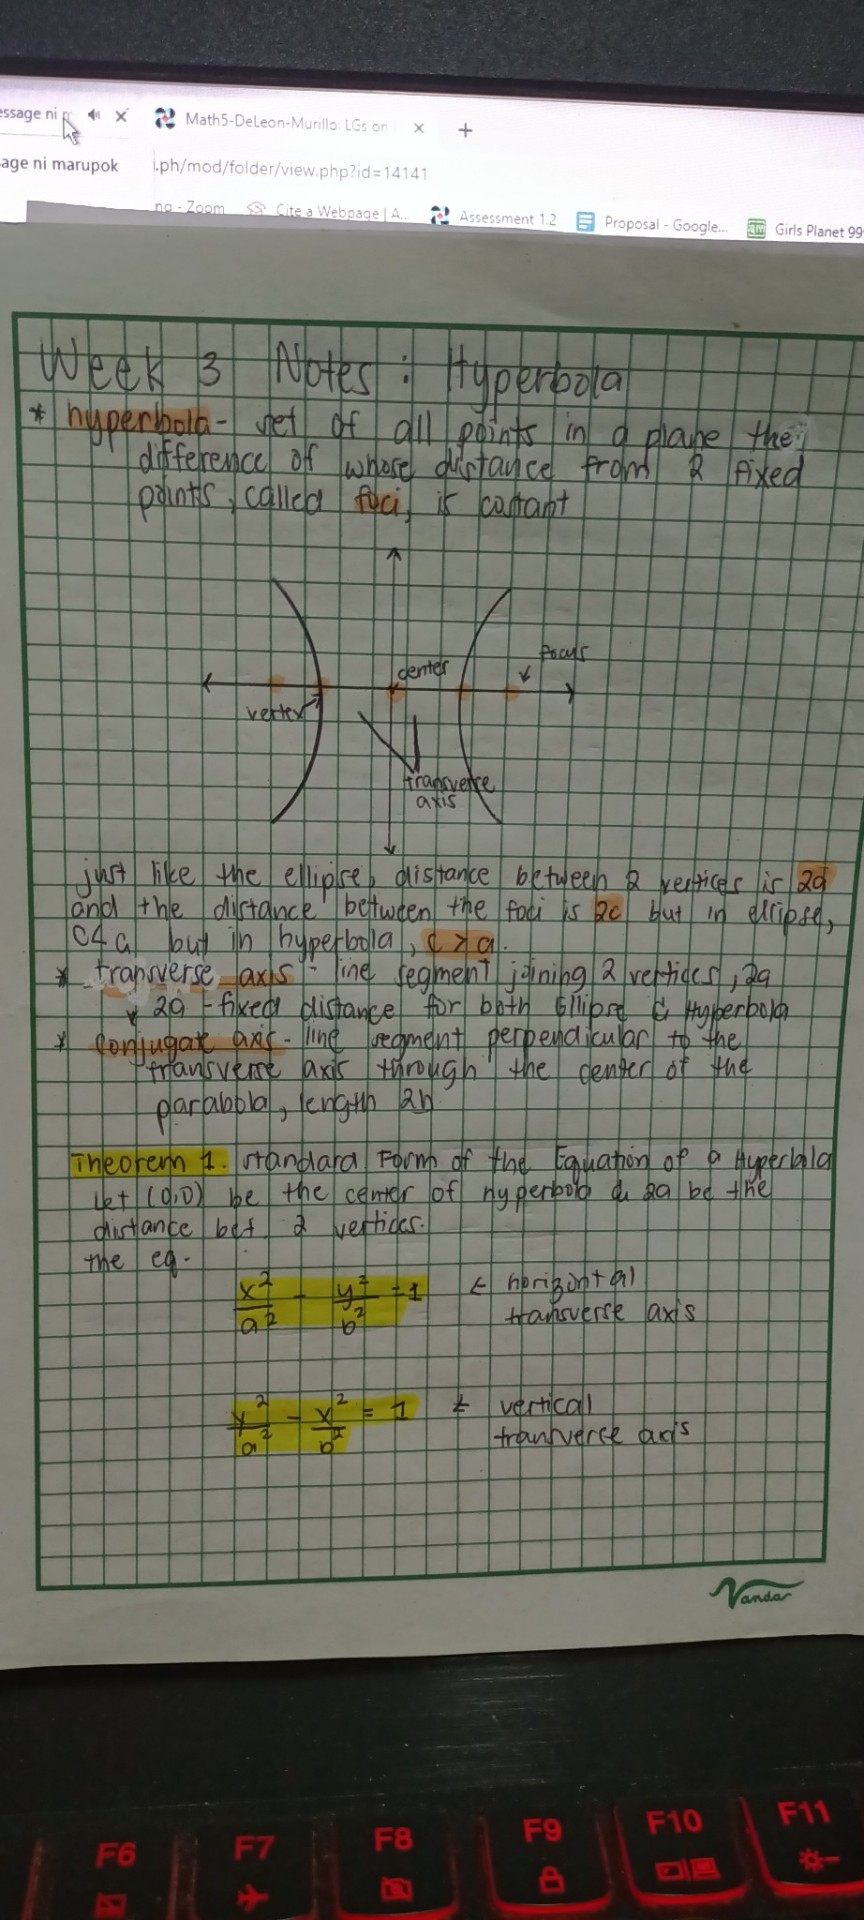 essage ni
Math5-DeLeon-Murillo: LGs on
age ni marupok
.ph/mod/folder/view.php?id=14141
ng - Zoom
Cite a Webpage | A...
Assessment 1.2
Proposal - Google...
Girls Planet 99
Week 3 Notes : Hyperbola
* hyperbola - set of all points in a plane the
difference of whose distance from 2 fixed
points, called foci, is costant
focus
center
vertex
transverse
axis
just like the ellipse, distance between 2 vertices is 2a
and the distance between the foci is 2c but in ellipse,
c<a but in hyperbola, c > a.
* transverse axis - line segment joining 2 vertices, 2a
2a - fixed distance for both Ellipse & Hyperbola
* conjugat axis - line segment perpendicular to the
transverse axis through the center of the
parabola, length 2b
Theorem 1. Standard Form of the Equation of a Hyperbola
Let (0,0) be the center of hyperbola & 2a be the
distance bet. 2 vertices.
the eq.
x²/a² - y²/b² = 1 ← horizontal
transverse axis
y²/a² - x²/b² = 1 ← vertical
transverse axis
Vanda
F6
F7
F8
F9
F10
F11